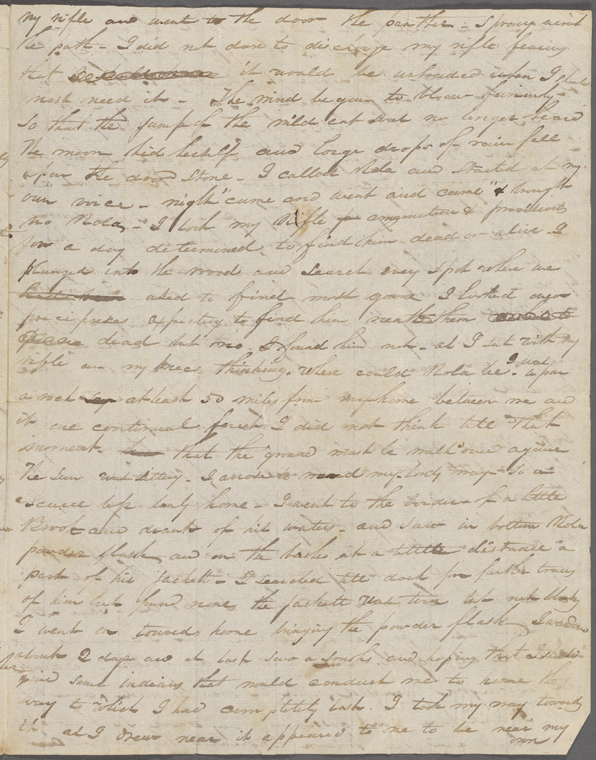 my rifle and went to the door the panther. sprung across
the path - I did not dare to discharge my rifle fearing
that it would be unloaded when I should
most need it - The wind began to blow furiously
So that the jump of the wild cat was no longer heard
the moon hid herself and large drops of rain fell
upon the door stone - I called Rola and started at my
own voice - night came and went and came & brought
no Rola - I took my Rifle amunition & provisions
for a day determined to find him dead or alive I
plunged into the wood and search every spot where we
used to find most game I looked over
precipices expecting to find him beneath them
dead but no. I found him not - as I sat with my
rifle on my knees thinking. Where could Rola be. I was upon
a rock at least 50 miles from my home between me and
it one continual forest I did not think till that
moment. that the ground must be walk'd over again
The Sun was setting. I arose to my way to a
scarce left lonly home - I went to the border of a little
Brook and drank of his waters - and saw in bottom Rola
powder flask and on the banks at a little distance a
part of his Jackett - I searched till dark for further traces
of him but found none the jackett was torn but not bloody
I went on towards home bringing the powder flask I wandered
about 2 days and at last saw a smoke and hoping that I should
find some indians that would conduct me to home the
way to which I had completely lost. I took my way towards
it as I drew near it appeared to me to be near my
own